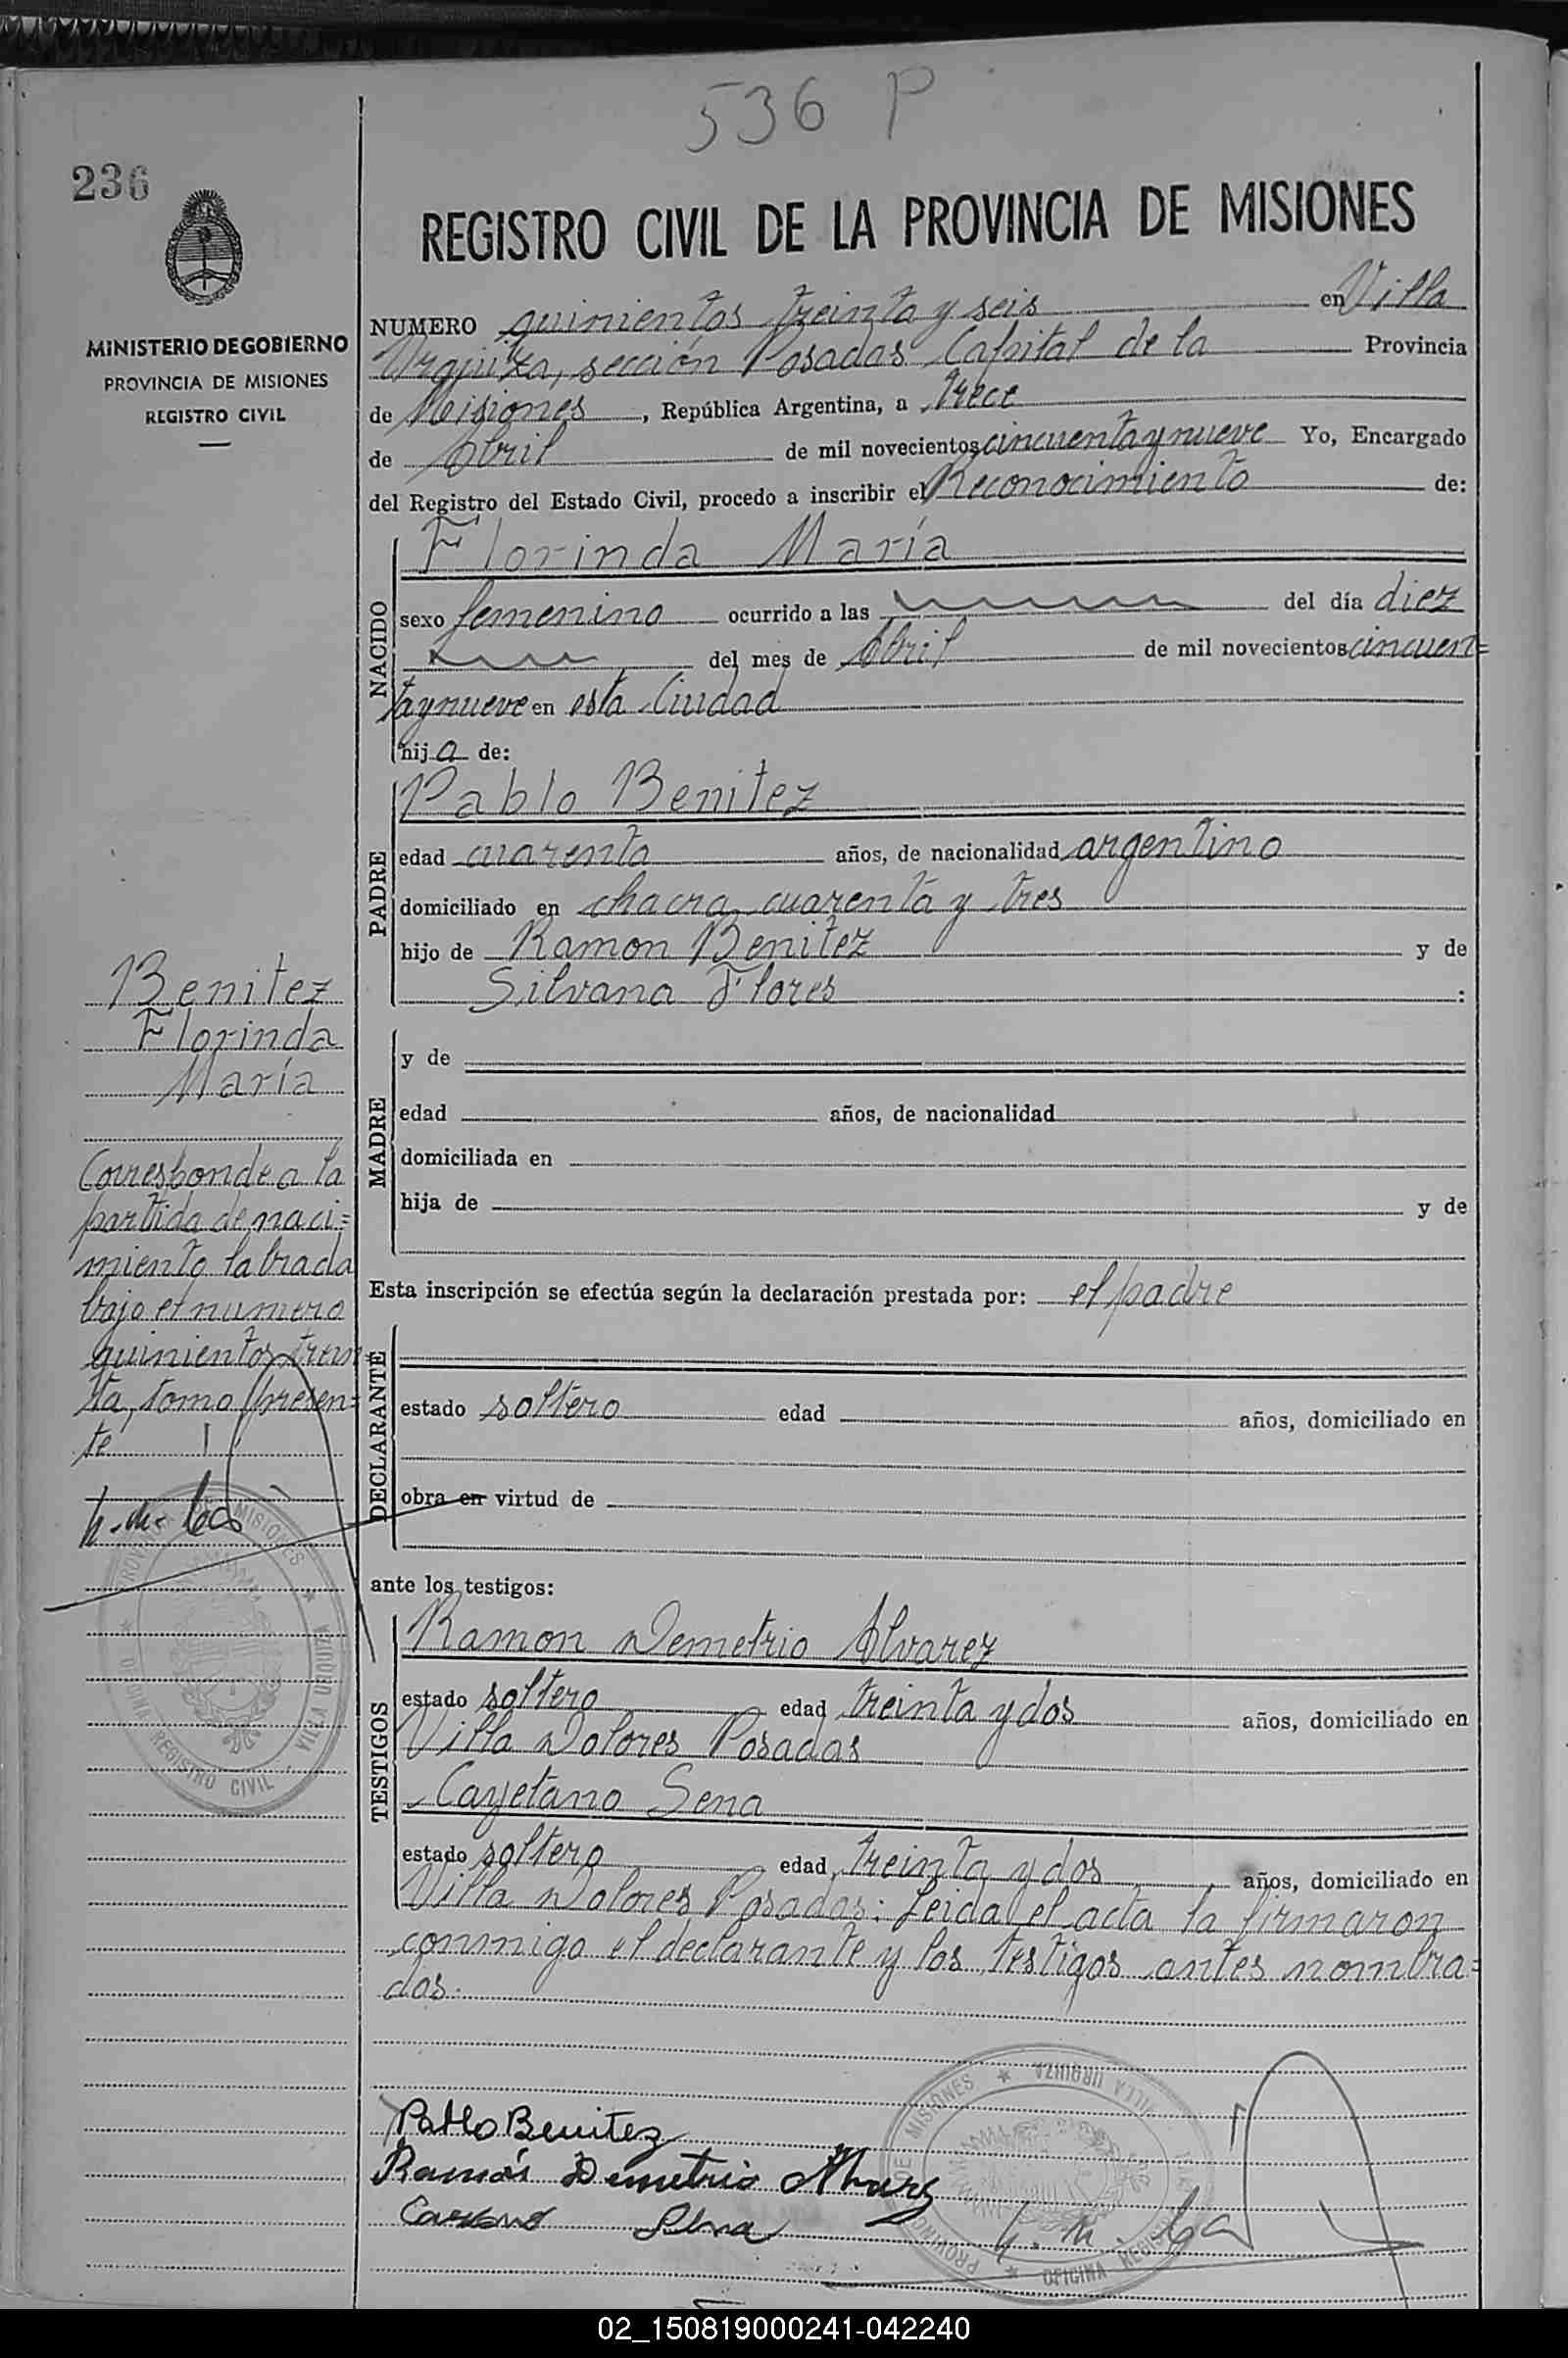 536 P
236
REGISTRO CIVIL DE LA PROVINCIA DE MISIONES
MINISTERIO DE GOBIERNO
PROVINCIA DE MISIONES
REGISTRO CIVIL
NUMERO quinientos treinta y seis en Villa
Urquiza, sección Posadas Capital de la Provincia
de Misiones, República Argentina, a trece
de Abril de mil novecientos cincuenta y nueve Yo, Encargado
del Registro del Estado Civil, procedo a inscribir el Reconocimiento de:
NACIDO
Florinda María
sexo femenino ocurrido a las del día diez
del mes de Abril de mil novecientos cincuen=
ta y nueve en esta Ciudad
hija de:
PADRE
Pablo Benitez
edad cuarenta años, de nacionalidad argentino
domiciliado en chacra cuarenta y tres
hijo de Ramon Benitez y de
Silvana Flores :
MADRE
y de
edad años, de nacionalidad
domiciliada en
hija de y de
Esta inscripción se efectúa según la declaración prestada por: el padre
DECLARANTE
estado soltero edad años, domiciliado en
obra en virtud de
ante los testigos:
TESTIGOS
Ramon Demetrio Alvarez
estado soltero edad treinta y dos años, domiciliado en
Villa Dolores Posadas
Cayetano Sena
estado soltero edad treinta y dos años, domiciliado en
Villa Dolores Posadas: Leida el acta la firmaron
conmigo el declarante y los testigos antes nombra=
dos.
Pablo Benitez
Ramón Demetrio Alvarez
Sena
Benitez
Florinda
María
Corresponde a la
partida de naci=
miento labrada
bajo el numero
quinientos trein=
ta, tomo presen=
te
PROVINCIA DE MISIONES ★ VILLA URQUIZA
★ OFICINA REGISTRO CIVIL
PROVINCIA DE MISIONES ★ VILLA URQUIZA
★ OFICINA REGISTRO
02_150819000241-042240